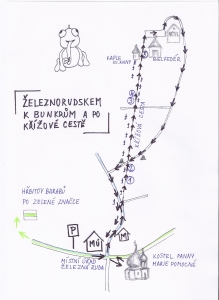 KAPLE
SV. ANNY
BELVEDÉR
ŽELEZNORUDSKEM
K BUNKRŮM A PO
KŘÍŽOVÉ CESTĚ
KŘÍŽOVÁ CESTA
HŘBITOV BARABŮ
PO ZELENÉ ZNAČCE
P
MÚ
MÍSTNÍ ÚŘAD
ŽELEZNÁ RUDA
KOSTEL PANNY
MARIE POMOCNÉ